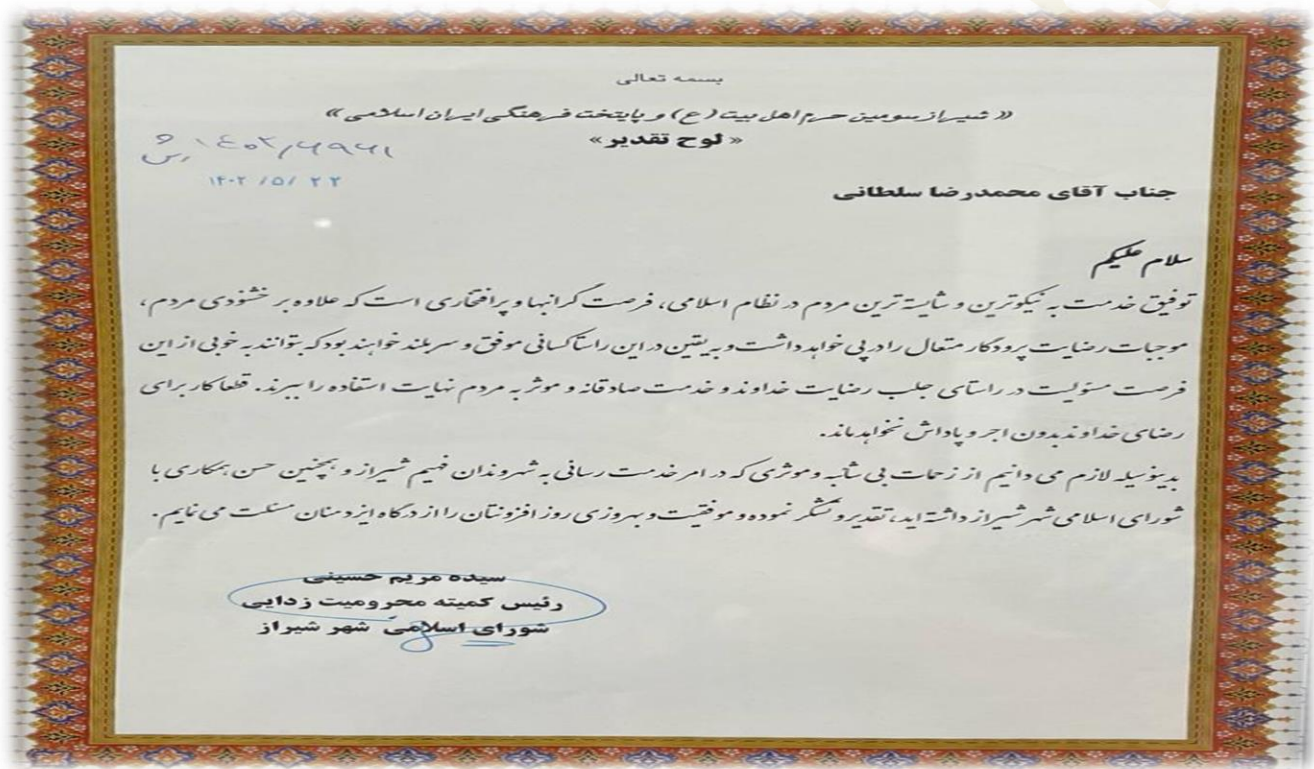 بسمه تعالی
«شیراز سومین حرم اهل بیت (ع) و پایتخت فرهنگی ایران اسلامی»
«لوح تقدیر»
۱۴۰۲/۵/۲۲
جناب آقای محمدرضا سلطانی
سلام علیکم
توفیق خدمت به نیکوترین و شایسته ترین مردم در نظام اسلامی، فرصت گرانبها و پرافتخاری است که علاوه بر خشنودی مردم،
موجبات رضایت پروردگار متعال را در پی خواهد داشت و به یقین در این راستا کسانی موفق و سربلند خواهند بود که بتوانند به خوبی از این
فرصت مسئولیت در راستای جلب رضایت خداوند و خدمت صادقانه و موثر به مردم نهایت استفاده را ببرند. قطعا کار برای
رضای خداوند بدون اجر و پاداش نخواهد ماند.
بدینوسیله لازم می دانیم از زحمات بی شائبه و موثری که در امر خدمت رسانی به شهروندان فهیم شیراز و همچنین حسن همکاری با
شورای اسلامی شهر شیراز داشته اید، تقدیر و تشکر نموده و موفقیت و بهروزی روز افزونتان را از درگاه ایزد منان مسئلت می نمایم.
سیده مریم حسینی
رئیس کمیته محرومیت زدایی
شورای اسلامی شهر شیراز